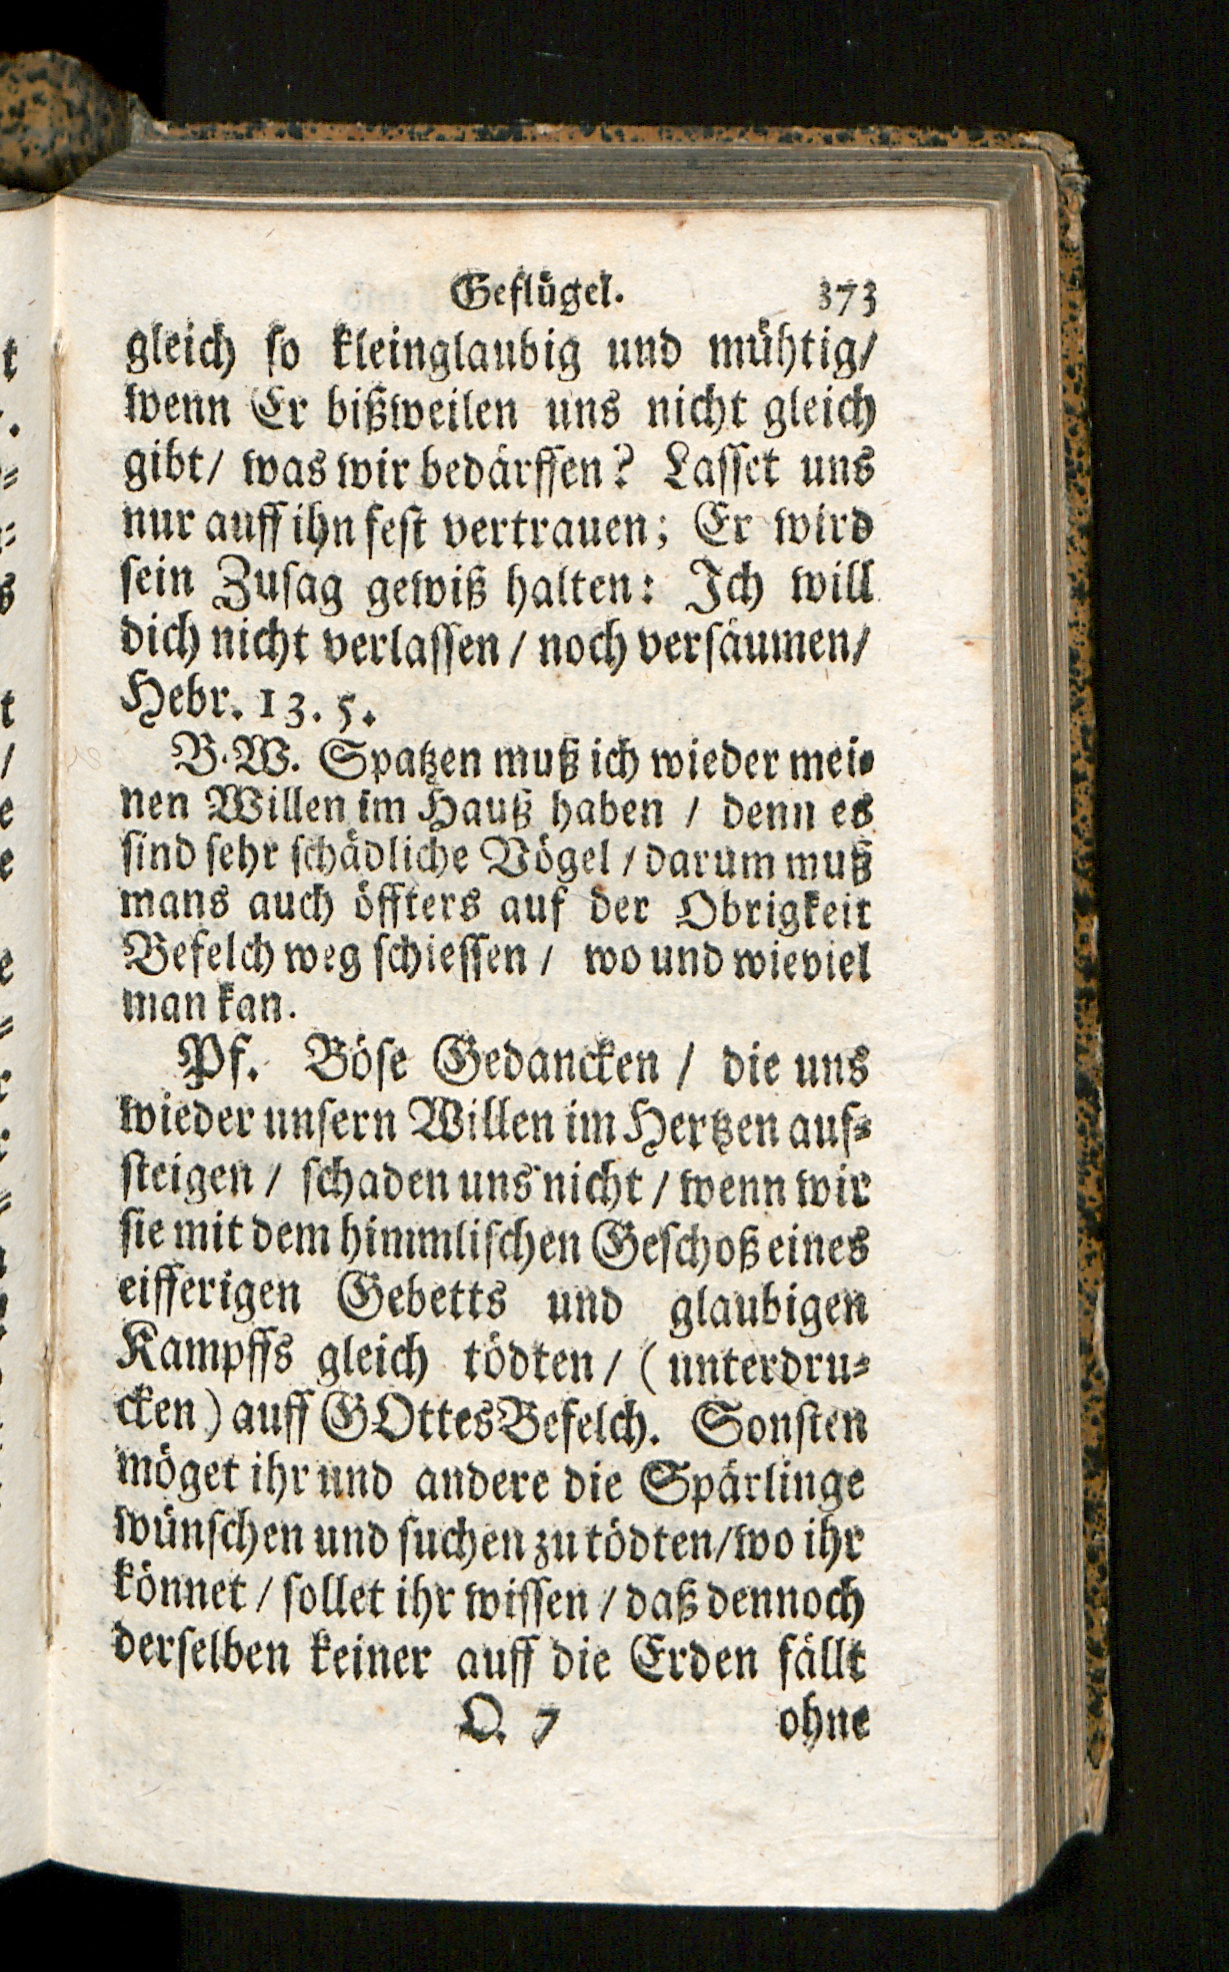 Geflügel. 373
gleich ſo kleinglaubig und mühtig/
wenn Er bißweilen uns nicht gleich
gibt/ was wir bedärffen? Laſſet uns
nur auff ihn feſt vertrauen; Er wird
ſein Zuſag gewiß halten: Ich will
dich nicht verlaſſen / noch verſäumen/
Hebr. 13. 5.
B. W. Spatzen muß ich wieder mei⸗
nen Willen im Hauß haben / denn es
ſind ſehr ſchädliche Vögel / darum muß
mans auch öffters auf der Obrigkeit
Befelch weg ſchieſſen / wo und wieviel
man kan.
Pf. Böſe Gedancken / die uns
wieder unſern Willen im Hertzen auf⸗
ſteigen / ſchaden uns nicht / wenn wir
ſie mit dem himmliſchen Geſchoß eines
eifferigen Gebetts und glaubigen
Kampffs gleich tödten / (unterdru⸗
cken) auff GOttes Befelch. Sonſten
möget ihr und andere die Spärlinge
wünſchen und ſuchen zu tödten/ wo ihr
könnet / ſollet ihr wiſſen / daß dennoch
derſelben keiner auff die Erden fällt
Q 7 ohne